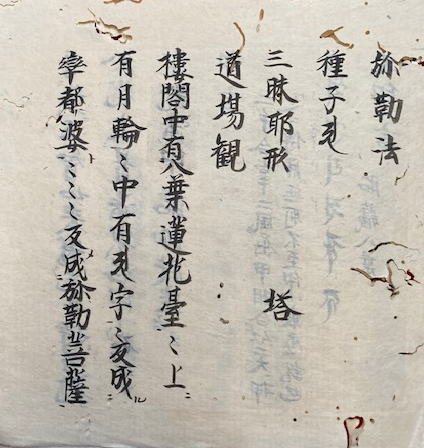 弥勒法
種子𑖧𑖲
三昧耶形 塔
道場観
樓閣中有八葉蓮花臺〻上ニ
有月輪〻中有𑖧𑖲字〻変成ル
率都婆〻〻〻変成弥勒菩薩